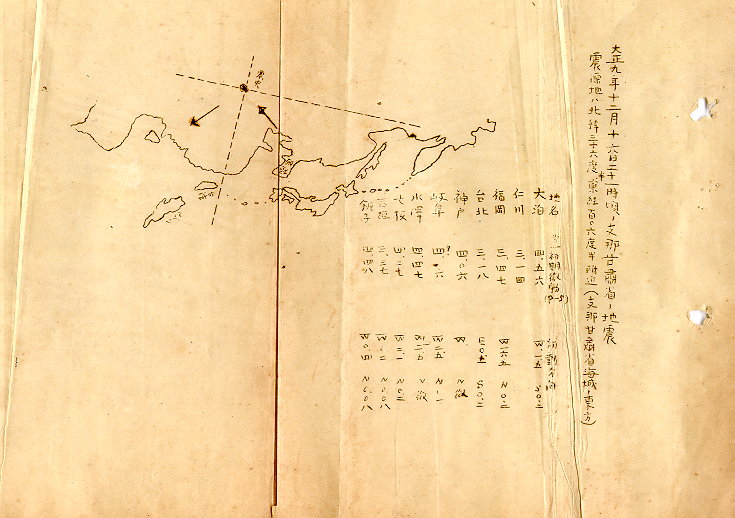 大正九年十二月十六日二十一時頃ノ支那甘肅省ノ地震
震源地ハ北緯三十六度半東経百〇六度半附近(支那甘肅省海城ノ東方)
地名 初期微動(P-S) 初動方向
大泊 四、五六 W一、五 S〇、二
仁川 三、一四
福岡 三、四七 W一六、五 N〇、二
台北 三、一八 E〇、五 S〇、二
神戸 四、〇六 W N微
岐阜 四、一六 W二、五 N一、一
水澤 四、四七 N微
大阪 四、二七 W二、一 N〇、二
三、三七 W〇、二 N〇、〇八
銚子 四、四八 W〇、四 N〇、〇八
震央